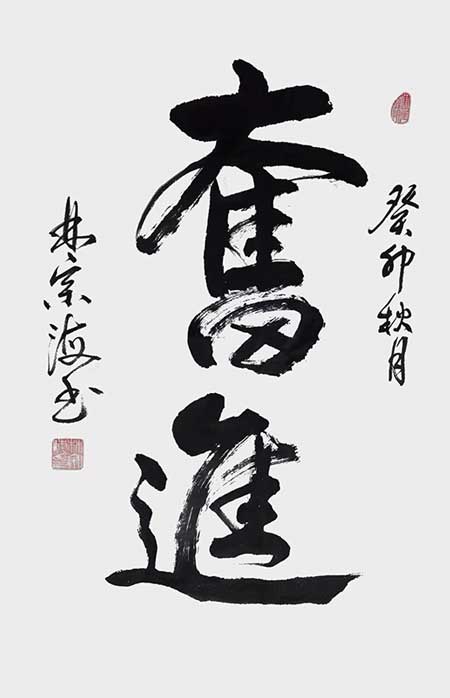 癸卯秋月
奮進
林宗海书